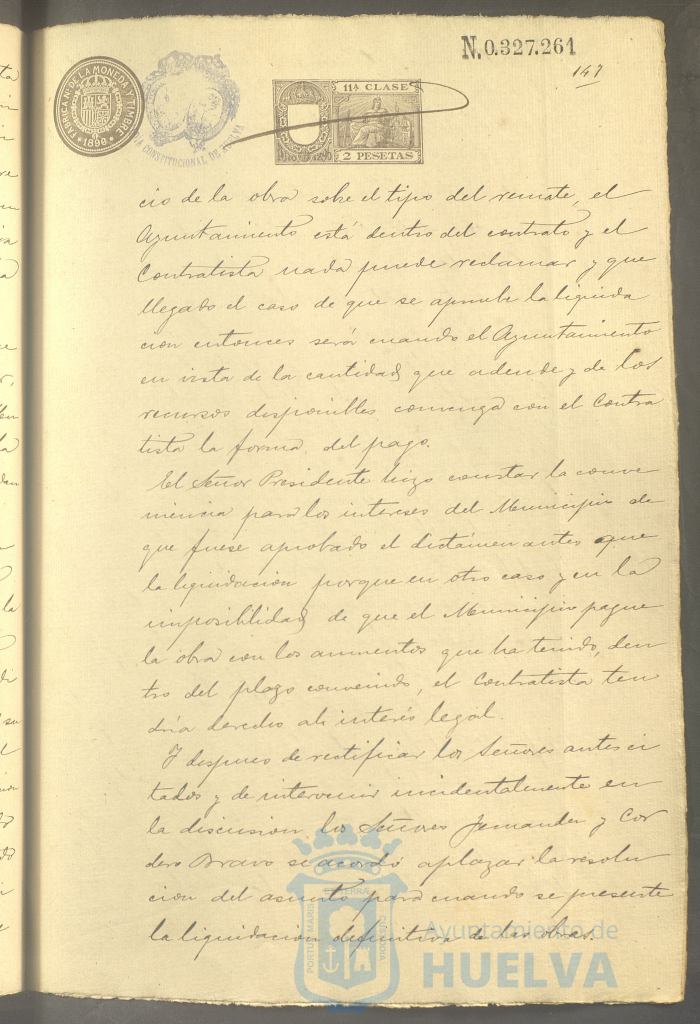 N. 0.327.261
147
FABRICA Nl. DE LA MONEDA Y TIMBRE
1890
CONSTITUCIONAL DE HUELVA
11ª CLASE
2 PESETAS
cio de la obra sobre el tipo del remate, el
Ayuntamiento está dentro del contrato y el
Contratista nada puede reclamar y que
llegado el caso de que se apruebe la liquida
cion entonces será cuando el Ayuntamiento
en vista de la cantidad que adeude y de los
recursos disponibles convenga con el Contra
tista la forma del pago.
El Señor Presidente hizo constar la conve
niencia para los intereses del Municipio de
que fuese aprobado el dictámen antes que
la liquidacion porque en otro caso y en la
imposibilidad de que el Municipio pague
la obra con los aumentos que ha tenido, den
tro del plazo convenido, el Contratista ten
dria derecho al interés legal.
Y despues de rectificar los Señores antes ci
tados y de intervenir incidentalmente en
la discusion los Señores y Cor
dero Bravo se acordó aplazar la resolu
cion del asunto para cuando se presente
la liquidacion definitiva de las obras.
PORTUS MARIS
TERRAE
CUSTODIA
Ayuntamiento de
HUELVA